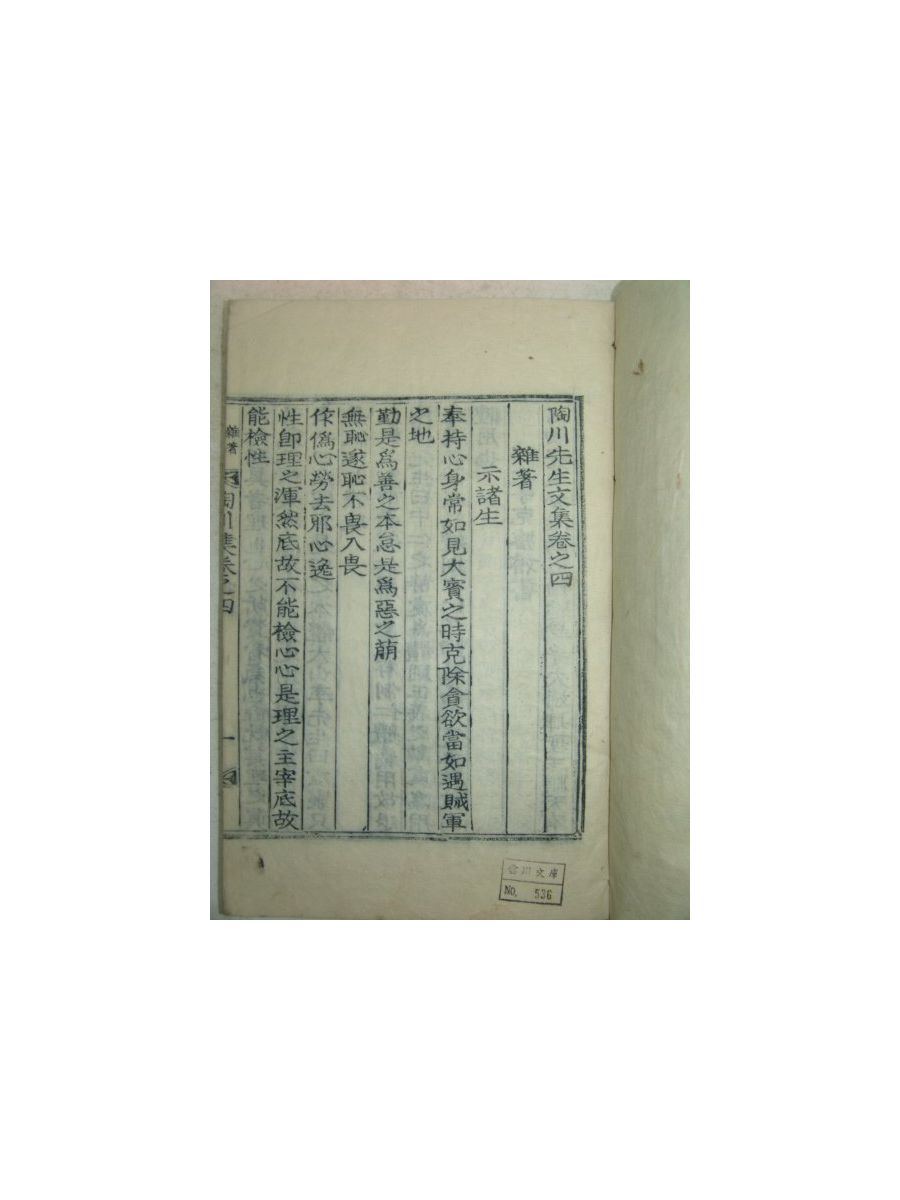 陶川先生文集卷之四
雜著
示諸生
奉持心身常如見大賓之時克除貪欲當如遇賊軍
之地
勤是爲善之本怠是爲惡之萠
無恥遂恥不畏入畏
作僞心勞去邪心逸
性卽理之渾然底故不能檢心心是理之主宰底故
能檢性
雜著
陶川集卷之四
一
川文庫
No. 536